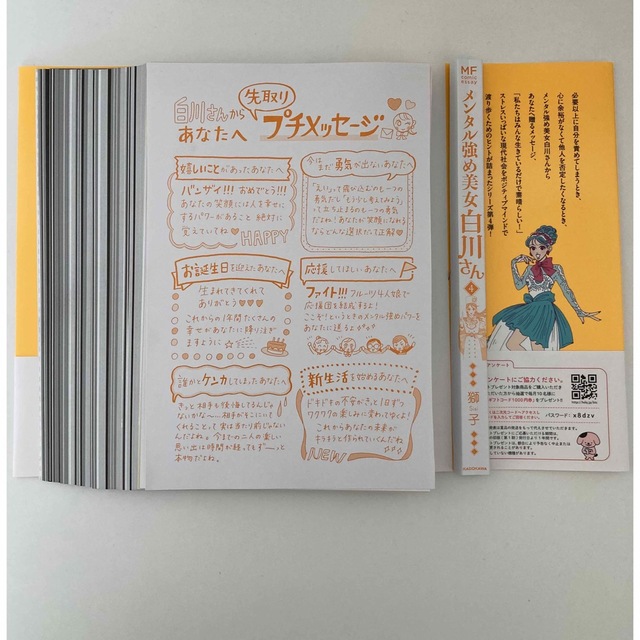 白川さんから
あなたへ
先取り
プチメッセージ
嬉しいことがあったあなたへ
バンザイ!!! おめでとう!!!
あなたの笑顔には人を幸せに
するパワーがあること 絶対に
覚えていてね♡ HAPPY
今はまだ勇気が出ないあなたへ
「えいっ」って飛び込むのも一つの
勇気だし「もう少し考えてみよう」
って立ち止まるのも一つの勇気
だよね!あなたが笑顔になれる
ならどんな選択だって正解♡
お誕生日を迎えたあなたへ
生まれてきてくれて
ありがとう♡♡♡
これからの1年間たくさんの
幸せがあなたに降り注ぎ
ますように☆
応援してほしいあなたへ
ファイト!!! フルーツ4人娘で
応援団を結成するよ!
ここぞ!というときのメンタル強めパワーを
あなたに送るよ
誰かとケンカしてしまったあなたへ
きっと相手も後悔してるんじゃ
ないかな〜。相手がそこにいて
くれることって実は当たり前じゃない
んだよね。今までの二人の楽しい
思い出は時間が経ってもずーっと
本物だよね。
新生活を始めるあなたへ
ドキドキの不安がきっと1日ずつ
ワクワクの楽しみに変わって学よ!
これからあなたの未来が
キラキラと作られていくんだね
NEW
MF
メンタル強め美女白川さん
4
獅子
KADOKAWA
必要以上に自分を責めてしまうとき、
心に余裕がなくて他人を否定したくなるとき、
メンタル強め美女白川さんから
あなたへ贈るメッセージ。
「私たちはみんな生きているだけで素晴らしい!」
ストレスいっぱいな現代社会をポジティブマインドで
渡り歩くためのヒントが詰まったシリーズ第4弾!
ンケート
ンケートにご協力ください。
パスワード: x8dzv